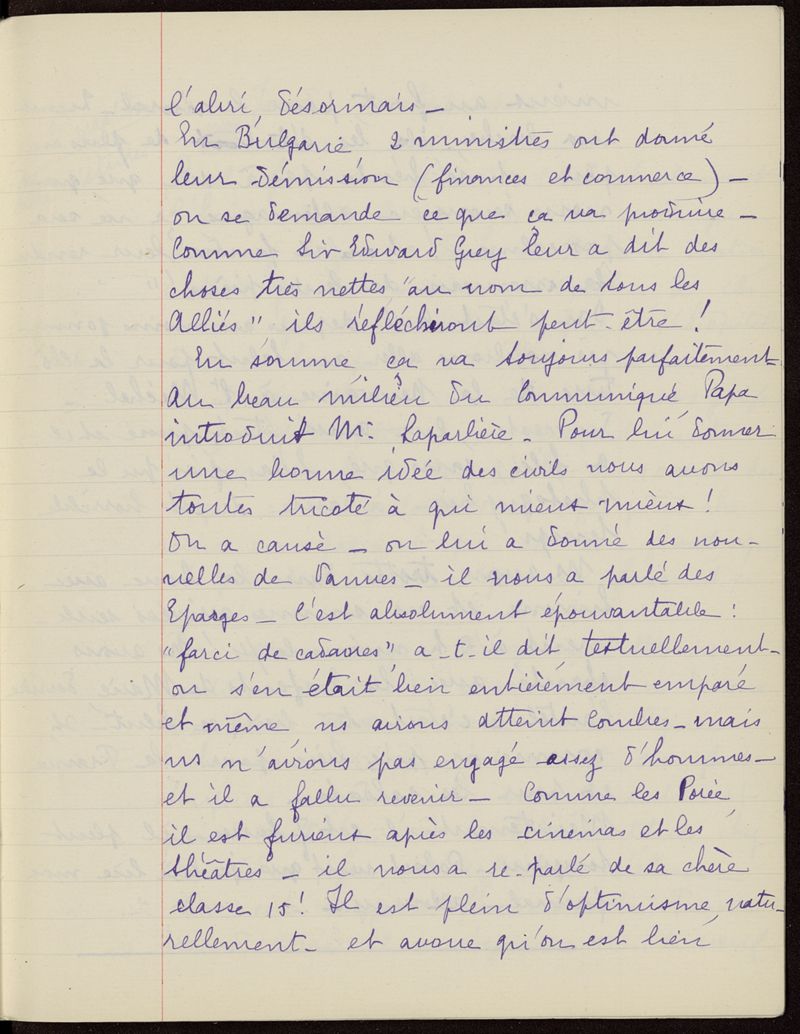 l'abri désormais –
En Bulgarie 2 ministres ont donné
leur démission (finances et commerce) –
on se demande ce que ça va produire –
Comme Sir Edward Grey leur a dit des
choses très nettes "au nom de tous les
Alliés" ils réfléchiront peut-être !
En somme ça va toujours parfaitement –
Au beau milieu du Communiqué Papa
introduit Mr. Laparlière – Pour lui donner
une bonne idée des civils nous avons
toutes tricoté à qui mieux mieux !
On a causé – on lui a donné des nou-
velles de Vannes – il nous a parlé des
Eparges – C'est absolument épouvantable :
"farci de cadavres" a-t-il dit textuellement –
on s'en était bien entièrement emparé
et même ns avions atteint Combres – mais
ns n'avions pas engagé assez d'hommes –
et il a fallu revenir – Comme les Porée
il est furieux après les cinémas et les
théâtres – il nous a re-parlé de sa chère
classe 15 ! Il est plein d'optimisme, natu-
rellement – et avoue qu'on est bien